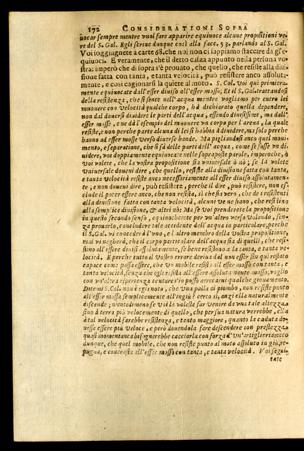 172 CONSIDERATIONI SOPRA
uocar sempre mentre vuol fare apparire equiuoce alcune propositioni ve-
re del S. Gal. Egli scriue dunque così alla facc. 53. parlando al S. Gal.
Voi soggiugnete a carte 68. che noi non ci lasciamo
equiuoci. E veramente, che il detto cada appunto nella persona vo-
stra: imperò che di sopra s'è prouato, che quello, che resiste alla diui-
sione fatta con tanta, e tanta velocità, può resistere anco assoluta-
mente, e così cagionarsi la quiete al moto. S. Col. voi qui primiera-
mente equiuocate dall'esser diuiso all'esser mosso; Et il S. Gal. trattandosi
della resistenza, che si sente nell'acqua mentre vogliamo per entro lei
muouere con velocità qualche corpo, hà dichiarato quella dependere,
non dal douersi diuidere le parti dell'acqua, essendo diuisissime, ma dall'
esser mosse
resiste, non perche parte alcuna di lei si habbia à diuidere, ma solo perche
hanno ad esser mosse
mento, e separatione, che si fà delle parti dell'acqua, come se fusse vn di-
uidere, voi doppiamente equiuocate nelle sopraposte parole, imperoche, ò
voi volete, che la vostra propositione sia vniuersale ò nò; se la volete
vniuersale doueui dire, che quello, resiste alla diuisione fatta con tanta,
e tanta velocità resiste anco necessariamente all'esser diuiso assolutamen-
te, e non doueui dire, può resistere, perche il dire, può resistere, non
clude il poter essere anco, che non resista, sì che sia vero, che de i resistenti
alla diuisione fatta con tanta velocità, alcuni ve ne siano, che resistino
alla semplice diuisione, & altri nò: Ma se voi prenderete la propositione
in questo secondo senso,
za prouarlo, concludere tale accidente dell'acqua in particolare, perche
il S. Gal. vi concederà l'vno, e l'altro membro della vostra propositione,
mà vi negherà, che il corpo particolare dell'acqua sia di quelli, che resi-
stino all'esser diuisi assolutamente, se bene resistono a la tanta, e tanta ve-
locità. E perche tutto il vostro errore deriua dal non esser stato quì restato
capace come possa essere, che vn mobile resista all'esser mosso con tanta, e
tanta velocità, senza che egli resista all'essere assolutamente mosso, voglio
con vn'altra esperienza
Ditemi S. Col. non è egli noto, che vna palla di piombo, non resiste punto
all'esser mossa semplicemente all'ingiù è certo sì, anzi ella naturalmente
discende;
sino à terra più velocemente di quello, che per sua natura verrebbe, ella à
tal velocità farebbe resistenza, e tanto maggiore, quanto la caduta do-
uesse essere più veloce, e però douendola fare descendere con prestezza,
quasi momentanea bisognerebbe cacciarla con forza d'vn'artiglieria: ecco
dunque, che quel mobile, che non resiste punto al moto assoluto in giù,
pugna, e contrasta all'esser mosso con tanta, e tanta velocità. Voi segui-
tate